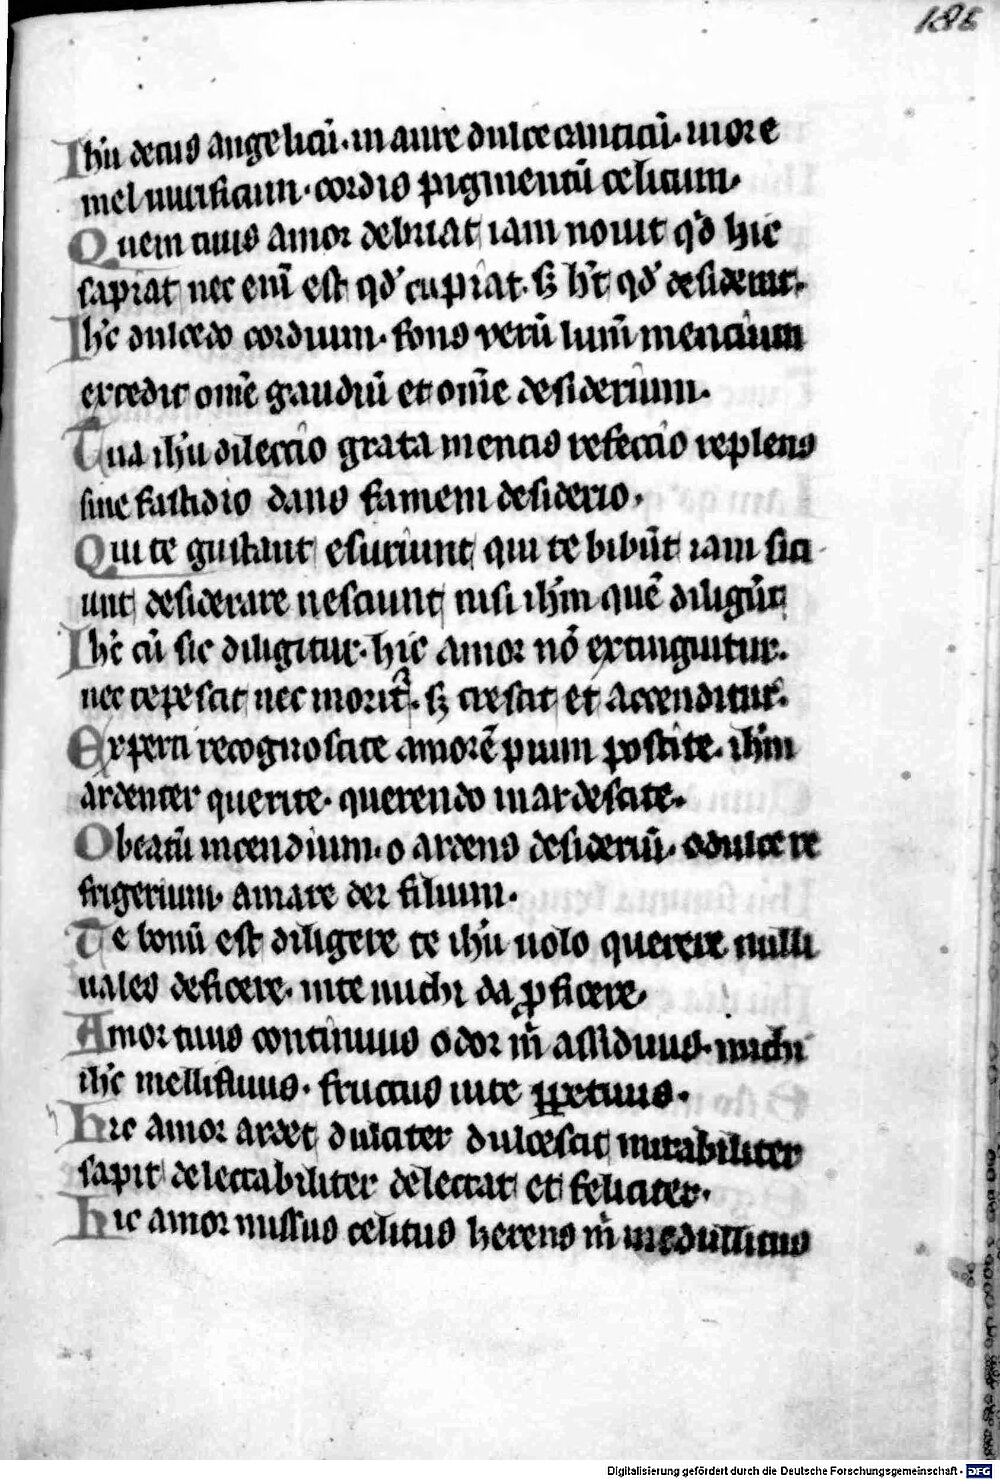 186
Ihū decus angelicū · in aure dulce canticū · in ore
mel mirificum · cordis pigmentū celicum ·
Quem tuus amor debriat iam nouit qd' hic
sapiat nec enī est qd' cupiat · sꝫ hͭ qd' desiderat ·
Ihc̄ dulcedo cordium · fons verū lumē mencium
excedit om̄e gaudiū et om̄e desiderium ·
Tua ihū dileccio grata mentis refeccio replens
sine fastidio dans famem desiderio ·
Qui te gustant esuriunt qui te bibūt iam sici
unt desiderare nesciunt nisi ihm̄ quē diligūt
Ihc̄ cū sic diligitur · hic amor nō extinguitur ·
nec tepescit nec morit᷑ · sꝫ crescit et accenditur ·
Experti recognoscite amorē pium poscite · ihm̄
ardenter querite · querendo inardescite ·
O beatū incendium · o ardens desideriū · o dulce re
frigerium · amare dei filium ·
Te bonū est diligere te ihū uolo querere michi
uales deficere · in te michi da ꝓficere ·
Amor tuus continuus odor m̄ assiduus · michi
ihc̄ mellifluus · fructus uite ꝑpetuus ·
Hic amor ardet dulciter dulcescit mirabiliter
sapit delectabiliter delectat et feliciter ·
Hic amor missus celitus herens m̄ medullitus
Digitalisierung gefördert durch die Deutsche Forschungsgemeinschaft - DFG